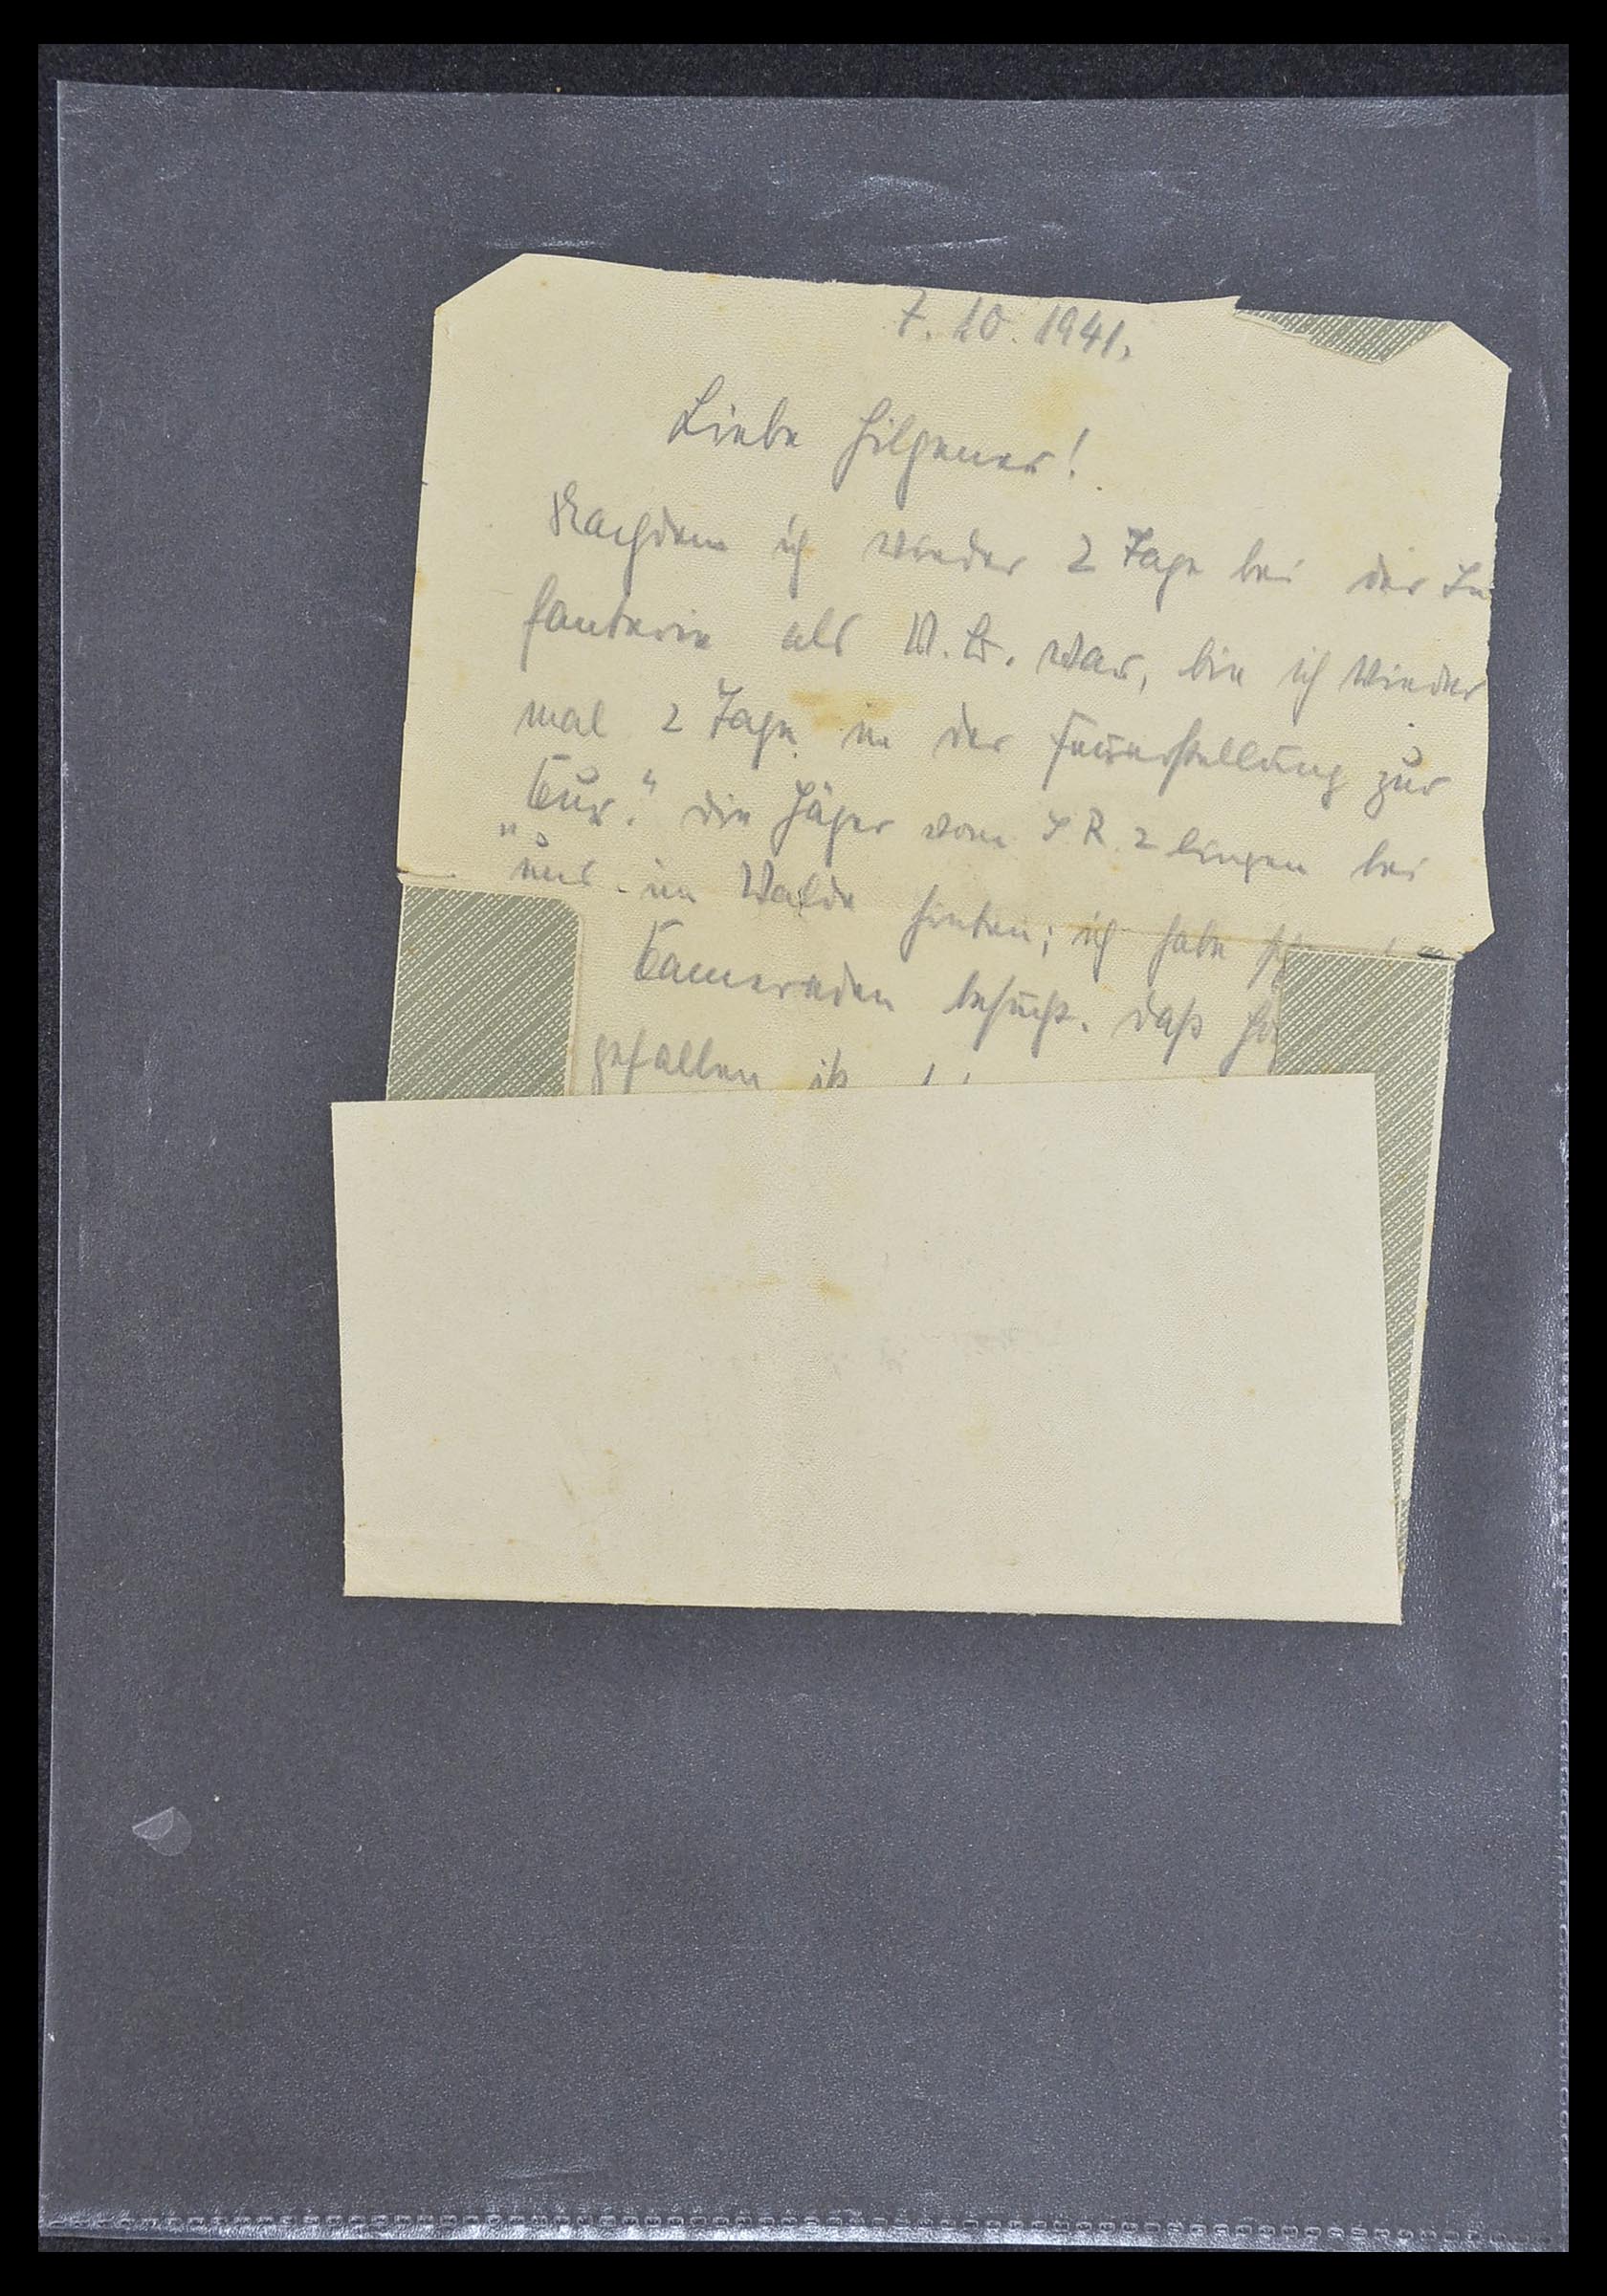 7. 10. 1941.
Liebe Hilgener!
Nachdem ich wieder 2 Tage bei der In
fanterie als V.B. war, bin ich wieder
mal 2 Tage in der Feuerstellung zur
"Kur." Die Jäger vom J.R. 2 liegen bei
uns im Walde hinten; ich habe
Kameraden besucht. Daß
gefallen ist